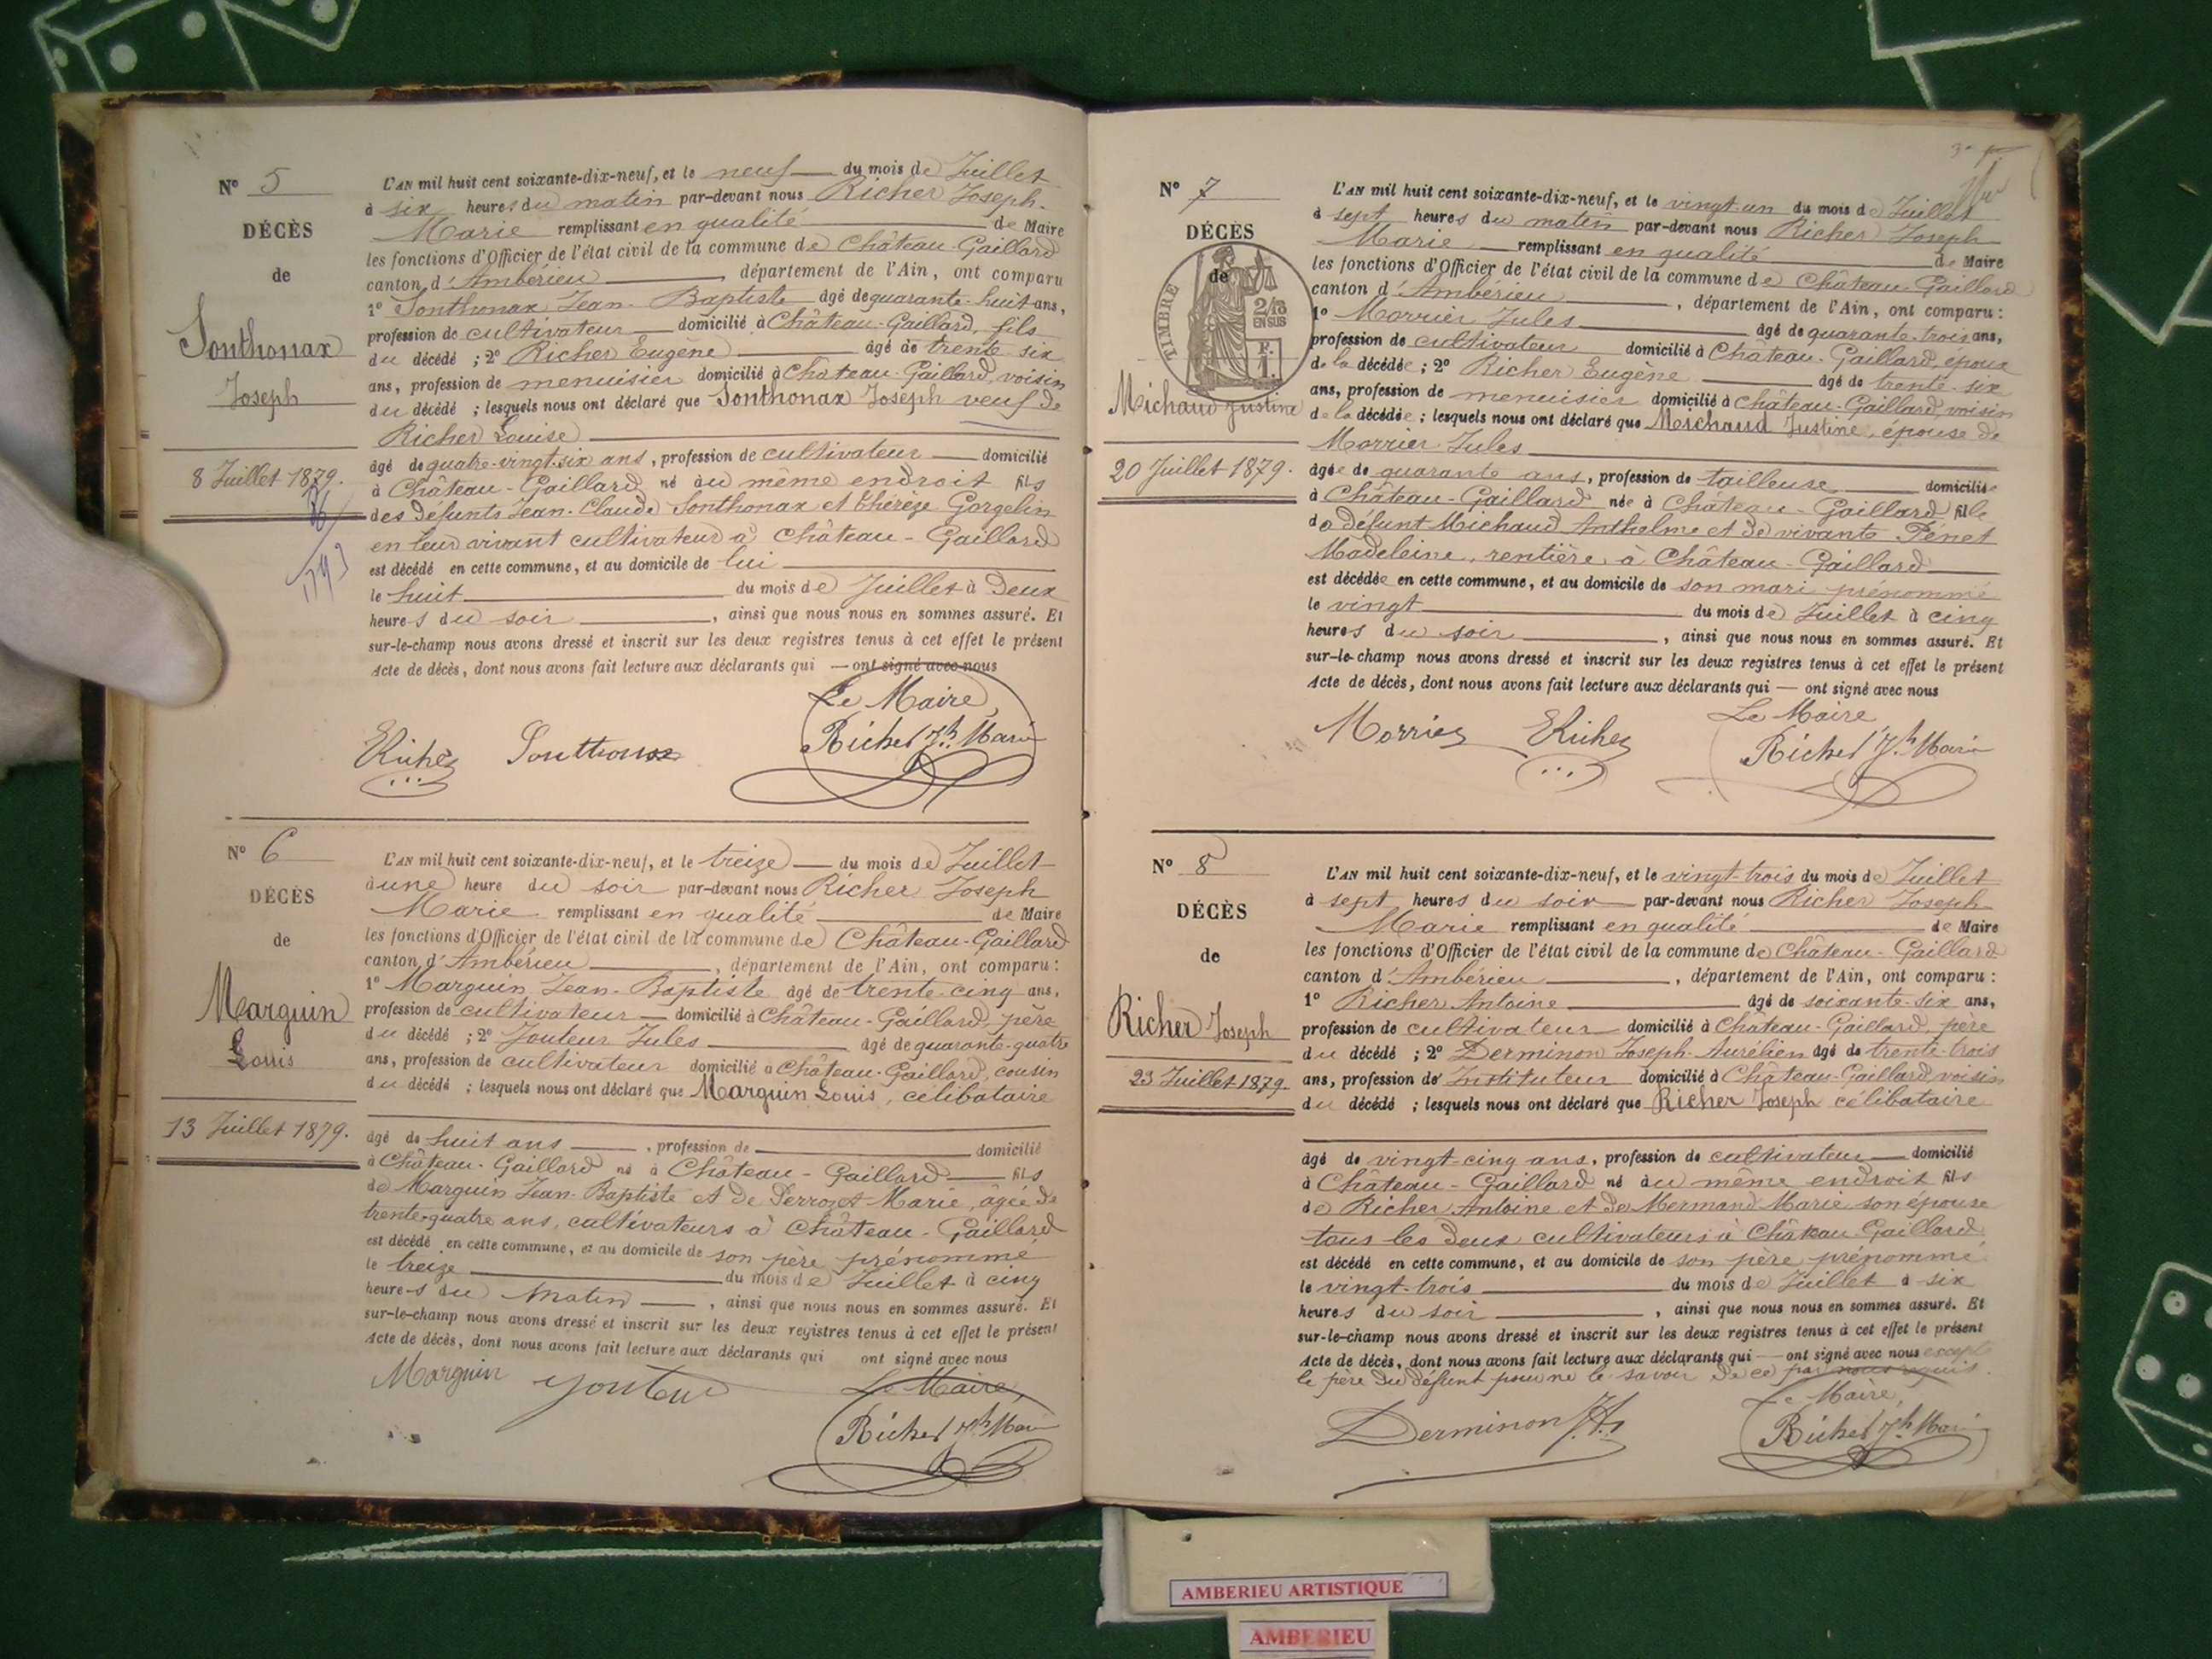 N° 5
DÉCÈS
de
Sonthonax
Joseph
8 Juillet 1879.
L'AN mil huit cent soixante-dix-neuf, et le neuf du mois de Juillet
à six heures du matin par-devant nous Richer Joseph-
Marie remplissant en qualité de Maire
les fonctions d'Officier de l'état civil de la commune de Château-Gaillard
canton d'Ambérieu, département de l'Ain, ont comparu
1° Sonthonax Jean-Baptiste âgé de quarante-huit ans,
profession de cultivateur domicilié à Château-Gaillard, fils
du décédé ; 2° Richer Eugène âgé de trente-six
ans, profession de menuisier domicilié à Château-Gaillard, voisin
du décédé ; lesquels nous ont déclaré que Sonthonax Joseph veuf de
Richer Louise
âgé de quatre-vingt-six ans, profession de cultivateur domicilié
à Château-Gaillard né au même endroit fils
des défunts Jean-Claude Sonthonax et Thérèze Gorgelin
en leur vivant cultivateur à Château-Gaillard
est décédé en cette commune, et au domicile de lui
le huit du mois de Juillet à deux
heures du soir, ainsi que nous nous en sommes assuré. Et
sur-le-champ nous avons dressé et inscrit sur les deux registres tenus à cet effet le présent
Acte de décès, dont nous avons fait lecture aux déclarants qui — ont signé avec nous
Le Maire,
ERicher Sonthonax Richer Jh Marie
N° 6
DÉCÈS
de
Marguin
Louis
13 Juillet 1879.
L'AN mil huit cent soixante-dix-neuf, et le treize du mois de Juillet
à une heure du soir par-devant nous Richer Joseph
Marie remplissant en qualité de Maire
les fonctions d'Officier de l'état civil de la commune de Château-Gaillard
canton d'Ambérieu, département de l'Ain, ont comparu :
1° Marguin Jean-Baptiste âgé de trente-cinq ans,
profession de cultivateur domicilié à Château-Gaillard, père
du décédé ; 2° Jouteur Jules âgé de quarante-quatre
ans, profession de cultivateur domicilié à Château-Gaillard, cousin
du décédé ; lesquels nous ont déclaré que Marguin Louis, célibataire
âgé de huit ans, profession de domicilié
à Château-Gaillard né à Château-Gaillard fils
de Marguin Jean-Baptiste et de Perrozet Marie, âgée de
trente-quatre ans, cultivateurs à Château-Gaillard
est décédé en cette commune, et au domicile de son père prénommé
le treize du mois de Juillet à cinq
heures du matin, ainsi que nous nous en sommes assuré. Et
sur-le-champ nous avons dressé et inscrit sur les deux registres tenus à cet effet le présent
Acte de décès, dont nous avons fait lecture aux déclarants qui ont signé avec nous
Marguin Jouteur Le Maire,
Richer Jh Marie
N° 7
DÉCÈS
de
TIMBRE
2/10
EN SUS
F.
1.
Michaud Justine
20 Juillet 1879.
L'AN mil huit cent soixante-dix-neuf, et le vingt-un du mois de Juillet
à sept heures du matin par-devant nous Richer Joseph
Marie remplissant en qualité de Maire
les fonctions d'Officier de l'état civil de la commune de Château-Gaillard
canton d'Ambérieu, département de l'Ain, ont comparu :
1° Morrier Jules âgé de quarante-trois ans,
profession de cultivateur domicilié à Château-Gaillard, époux
de la décédée ; 2° Richer Eugène âgé de trente-six
ans, profession de menuisier domicilié à Château-Gaillard, voisin
de la décédée ; lesquels nous ont déclaré que Michaud Justine, épouse de
Morrier Jules
âgée de quarante ans, profession de tailleuse domiciliée
à Château-Gaillard née à Château-Gaillard fille
de défunt Michaud Anthelme et de vivante Pénet
Madeleine, rentière à Château-Gaillard
est décédée en cette commune, et au domicile de son mari prénommé
le vingt du mois de Juillet à cinq
heures du soir, ainsi que nous nous en sommes assuré. Et
sur-le-champ nous avons dressé et inscrit sur les deux registres tenus à cet effet le présent
Acte de décès, dont nous avons fait lecture aux déclarants qui — ont signé avec nous
Le Maire
Morrier ERicher Richer Jh Marie
N° 8
DÉCÈS
de
Richer Joseph
23 Juillet 1879.
L'AN mil huit cent soixante-dix-neuf, et le vingt-trois du mois de Juillet
à sept heures du soir par-devant nous Richer Joseph
Marie remplissant en qualité de Maire
les fonctions d'Officier de l'état civil de la commune de Château-Gaillard
canton d'Ambérieu, département de l'Ain, ont comparu :
1° Richer Antoine âgé de soixante-six ans,
profession de cultivateur domicilié à Château-Gaillard, père
du décédé ; 2° Derminon Joseph-Aurélien âgé de trente-trois
ans, profession de Instituteur domicilié à Château-Gaillard, voisin
du décédé ; lesquels nous ont déclaré que Richer Joseph célibataire
âgé de vingt-cinq ans, profession de cultivateur domicilié
à Château-Gaillard né au même endroit fils
de Richer Antoine et de Mermand Marie son épouse
tous les deux cultivateurs à Château-Gaillard
est décédé en cette commune, et au domicile de son père prénommé
le vingt-trois du mois de Juillet à six
heures du soir, ainsi que nous nous en sommes assuré. Et
sur-le-champ nous avons dressé et inscrit sur les deux registres tenus à cet effet le présent
Acte de décès, dont nous avons fait lecture aux déclarants qui — ont signé avec nous excepté
le père du défunt pour ne le savoir de ce par nous requis.
Le Maire,
Derminon Richer Jh Marie
AMBERIEU ARTISTIQUE
AMBERIEU